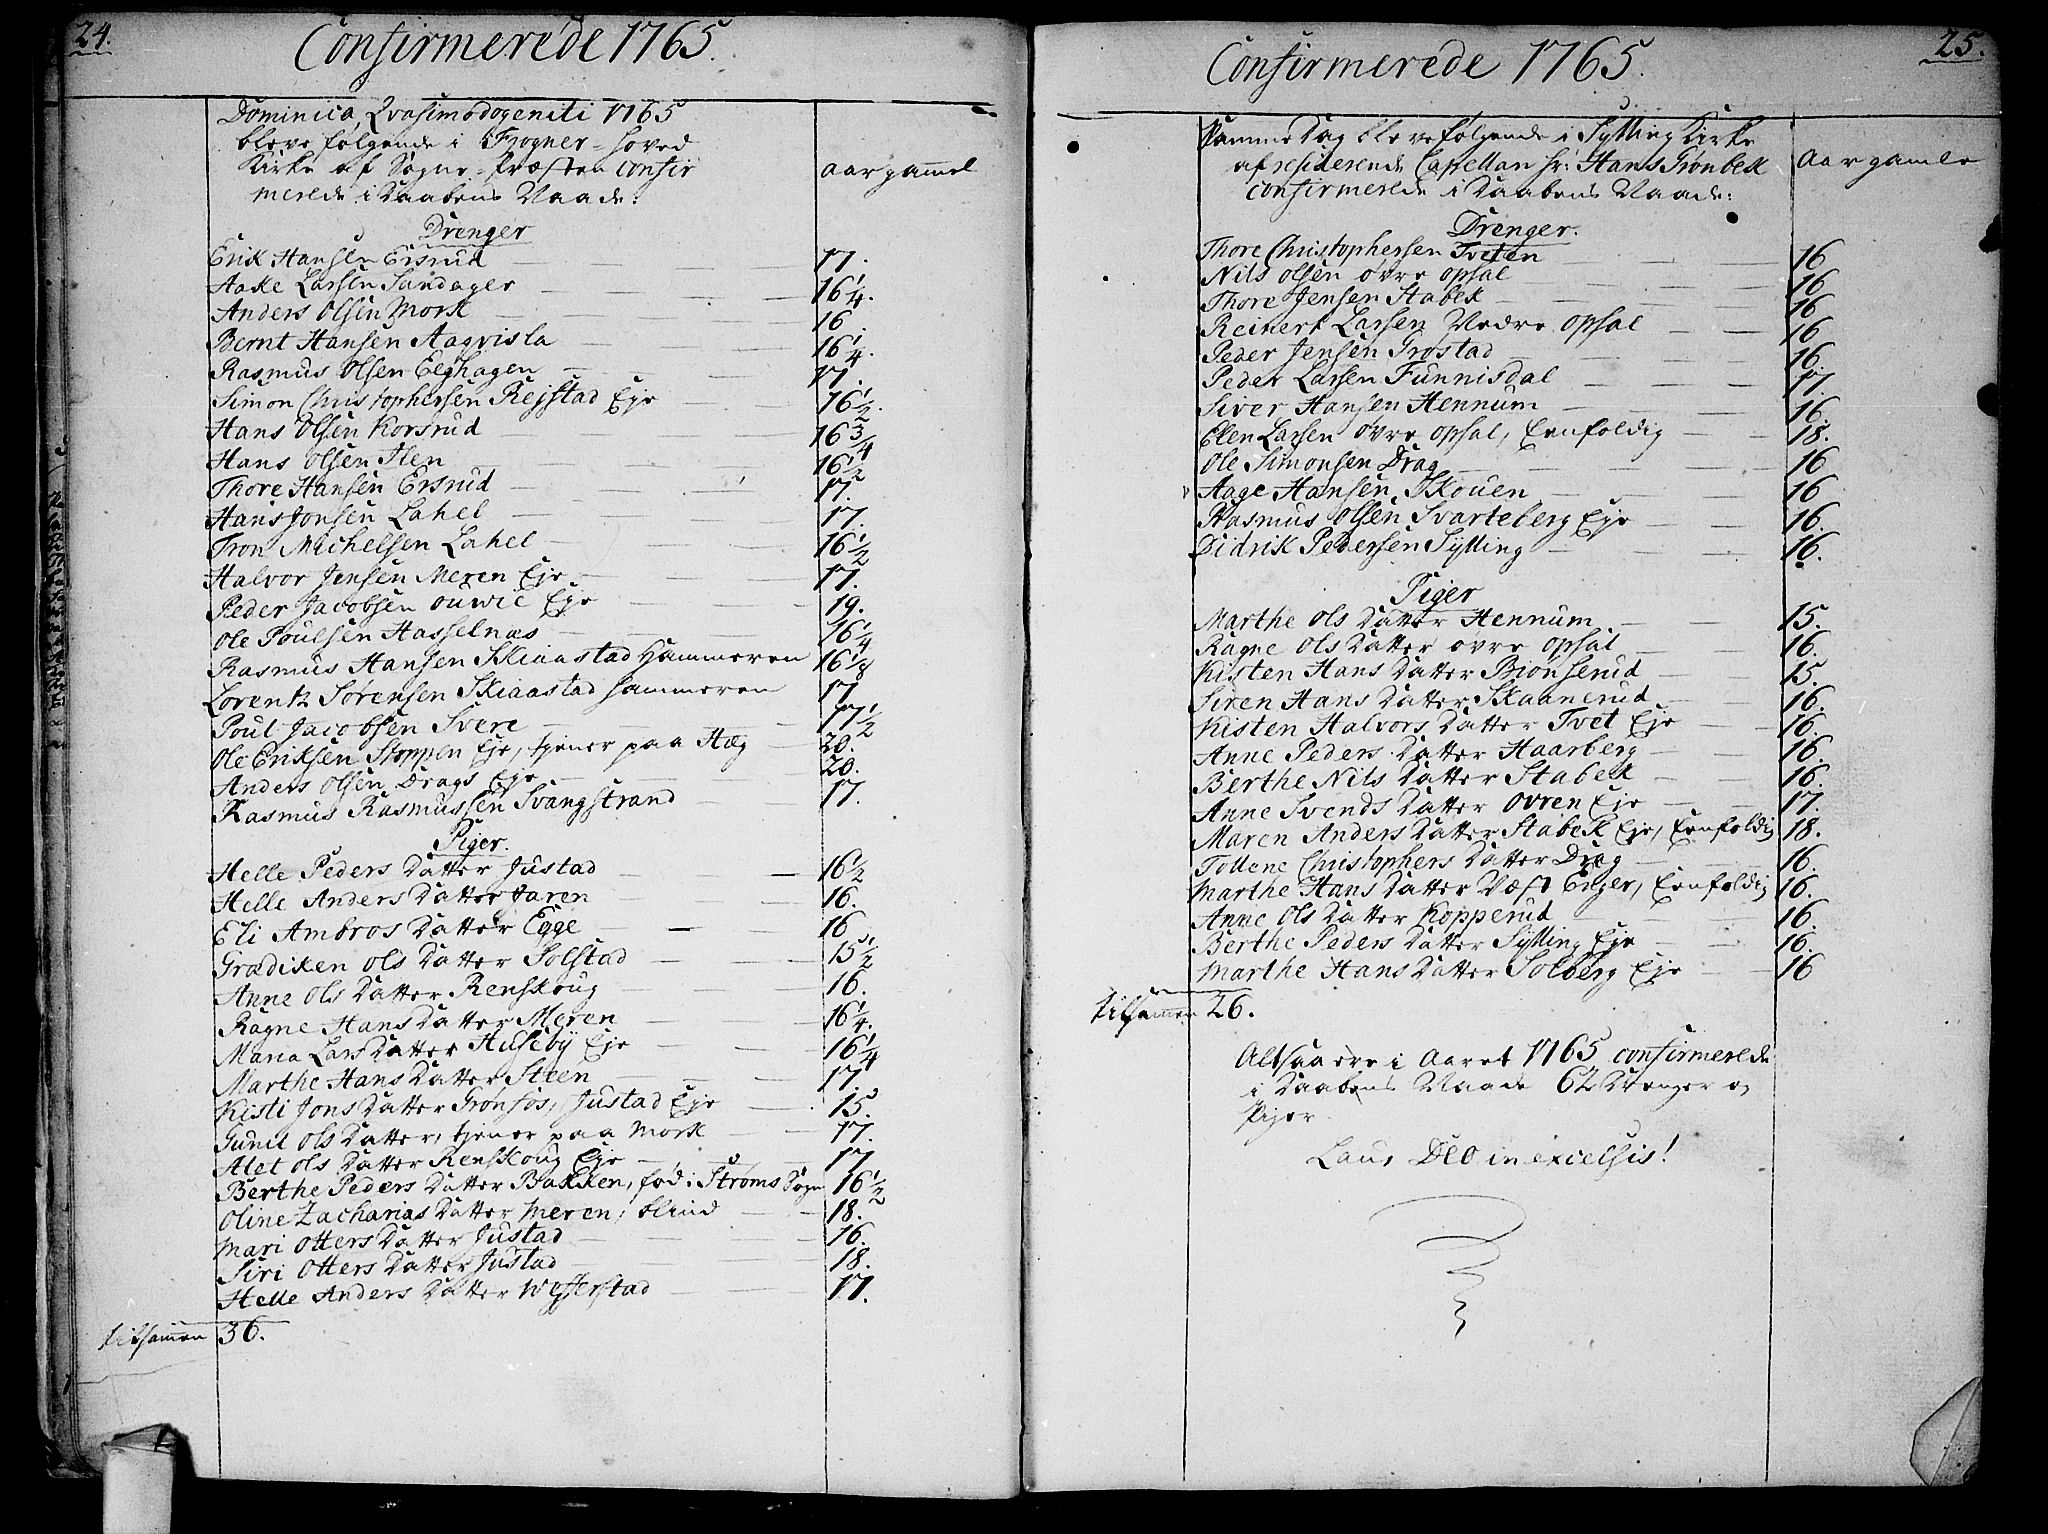 24.
Confirmerede 1765.
Dominica, Qvasimodogeniti 1765
bleve følgende i Frogner-hoved
Kirke af Sogne-Præsten confir
merede i Daabens Naade:
aar gammel
Drenger
Erik Hansen Ersrud 17.
Aake Larsen Sandager 16 1/4.
Anders Olsen Mork 16
Bernt Hansen Aaqvisla 16 1/4.
Rasmus Olsen Eeghagen 17.
Simon Christophersen Rejstad Eje 16 1/2.
Hans Olsen Korsrud 16 3/4
Hans Olsen Hen 16 1/2
Thore Hansen Ersrud 17.
Hans Jonsen Lahel 17.
Tron Michelsen Lahel 16 1/2
Halvor Jensen Meren Eje 17.
Peder Jacobsen Ouwie Eje 19.
Ole Poulsen Hasselnæs 16 1/4
Rasmus Hansen Skiaastad Hammeren 16 1/8
Lorentz Sørensen Skiaastad Hammeren 17
Poul Jacobsen Svere 17 1/2
Ole Eriksen Stoppen Eje, tjener paa Hæg 20.
Anders Olsen Drags Eje 20.
Rasmus Rasmussen Svangstrand 17.
Piger.
Helle Peders Datter Justad 16 1/2
Helle Anders Datter Jaren 16.
Eli Ambros Datter Egge 16
Grædiken Ols Datter Solstad 15 1/2
Anne Ols Datter Renskoug 16.
Ragne Hans Datter Meren 16 1/4.
Maria Lars Datter Huseby Eje 16 1/4
Marthe Hans Datter Steen 17.
Kisti Jons Datter Grønsøs, Justad Eje 15.
Gunil Ols Datter, tjener paa Mork 17.
Alet Ols Datter Renskoug Eje 17
Berthe Peders Datter Bakken, fød i Strøms Sogn 16 1/2
Oline Zacharias Datter Meren, blind 18.
Mari Otters Datter Justad 16.
Siri Otters Datter Justad 18.
Helle Anders Datter Wefferstad 17.
tilsammen 36.
25.
Confirmerede 1765.
Samme Dag bleve følgende i Sylling Kirke
af residerende Capellan Hr: Hans Grønbek
confirmerede i Daabens Naade:
Aar gamle
Drenger.
Thore Christophersen Tveten 16
Nils Olsen øvre Opsal 16
Thore Jensen Stabek 16
Reinert Larsen Nedre Opsal 16
Peder Jensen Grøstad 16.
Peder Larsen Funnisdal 17.
Siver Hansen Hennum 16.
Elen Larsen øvre Opsal, Eenfoldig 18.
Ole Simonsen Drag 16
Aage Hansen Skouen 16
Rasmus Olsen Svarteberg Eje 16.
Didrik Pedersen Sylling 16.
Piger
Marthe Ols Datter Hennum 15.
Ragne Ols Datter øvre Opsal 16.
Kisten Hans Datter Biønserud 15.
Siren Hans Datter Skaanerud 16.
Kisten Halvors Datter Tvet Eje 16.
Anne Peders Datter Haarberg 16.
Berthe Nils Datter Stabek 16.
Anne Svends Datter Ovren Eje 17.
Maren Anders Datter Stabek Eje, Eenfoldig 18.
Tollene Christophers Datter Drag 16.
Marthe Hans Datter Væst Enger, Eenfoldig 16.
Anne Ols Datter Kopperud 16.
Berthe Peders Datter Sylling Eje 16.
Marthe Hans Datter Solberg Eje 16
tilsammen 26.
Altsaa ere i Aaret 1765 confirmerede
i Daabens Naade 62 Drenger og
Piger
Laus Deo in excelsis!